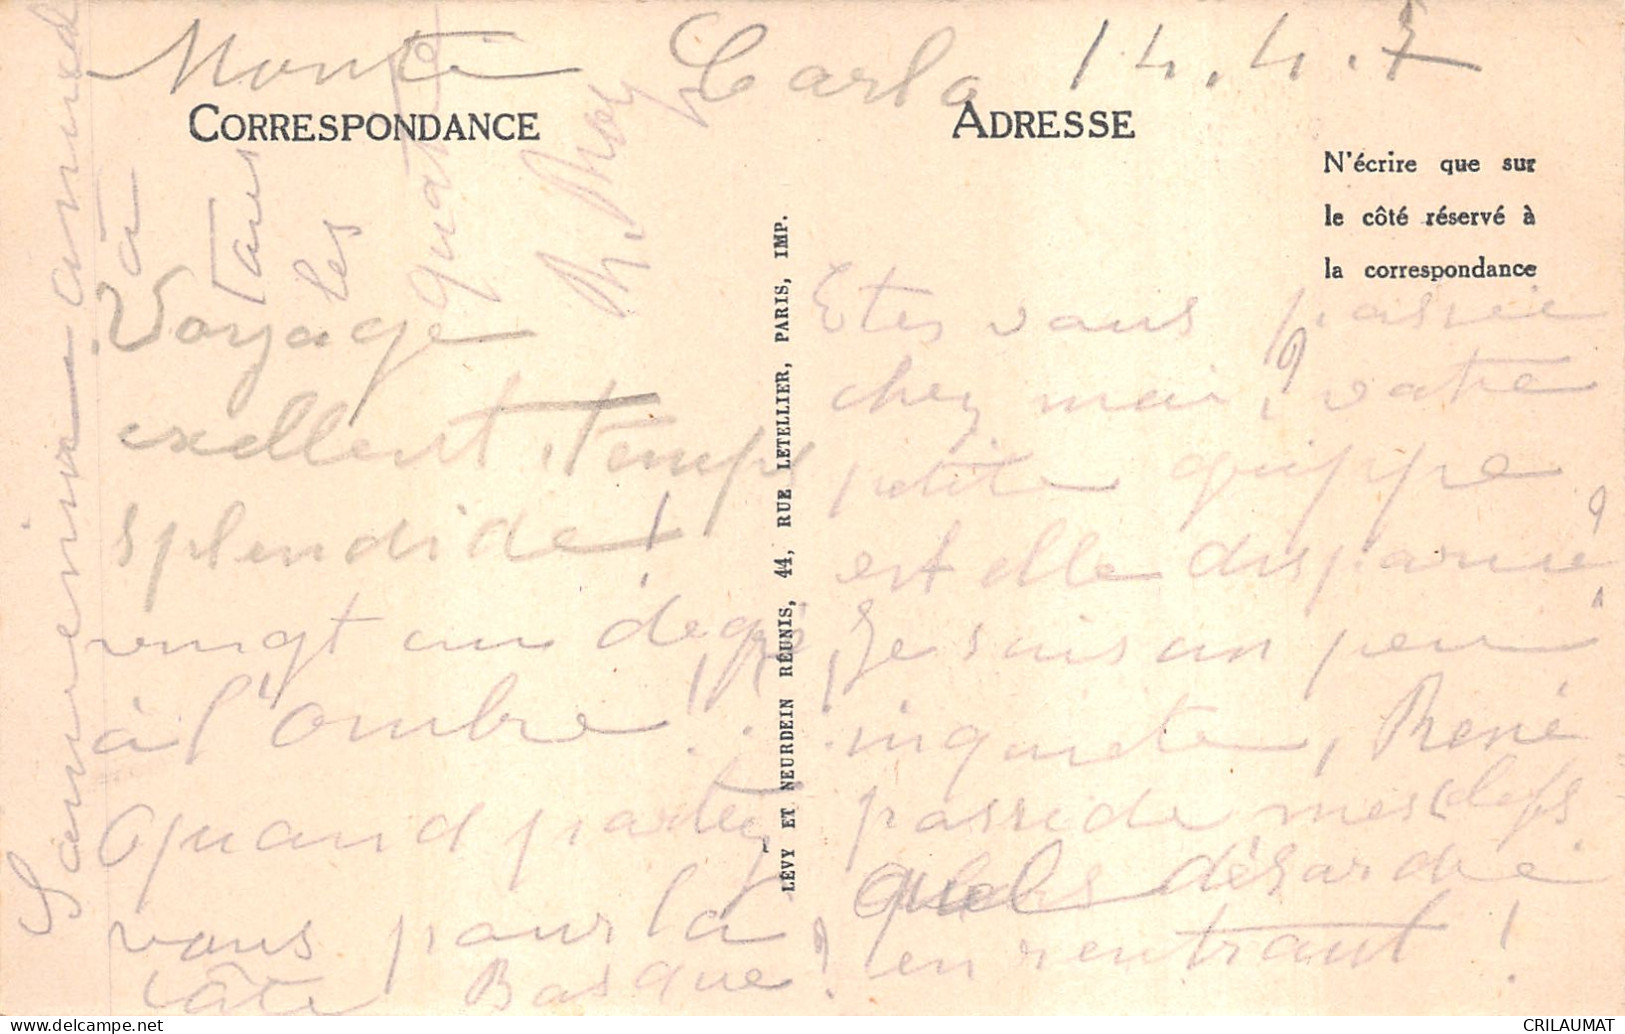 Monte Carlo 14.4.7
CORRESPONDANCE
ADRESSE
N'écrire que sur
le côté réservé à
la correspondance
Voyage
excellent, temps
splendide!
vingt un degré
à l'ombre!..!
Quand partez
vous pour la
Côte Basque?
Etes vous passée
chez moi? votre
petite grippe
est elle disparue?
Je suis un peu
inquiète, René
possède mes clefs
quel désordre
en rentrant!
Souvenirs
à
Tous
les
quatre
LÉVY ET NEURDEIN RÉUNIS, 44, RUE LETELLIER, PARIS, IMP.
CRILAUMAT